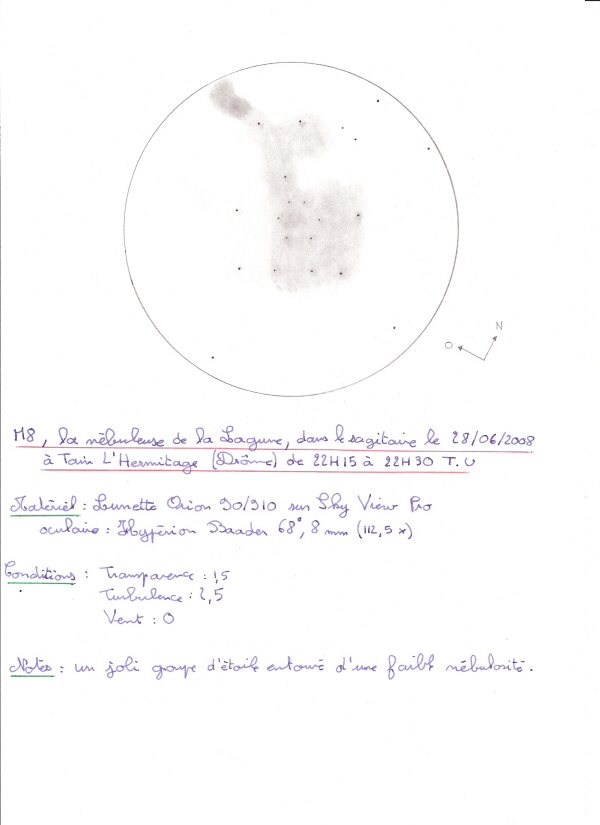 N
O
M8, la nébuleuse de la Lagune, dans le sagitaire le 28/06/2008
à Tain L'Hermitage (Drôme) de 22H15 à 22H30 T.U
Matériel : Lunette Orion 90/910 sur Sky View Pro
oculaire : Hypérion Baader 68°, 8 mm (112,5 x)
Conditions : Transparence : 1,5
Turbulence : 2,5
Vent : 0
Notes : un joli groupe d'étoile entouré d'une faible nébulosité.